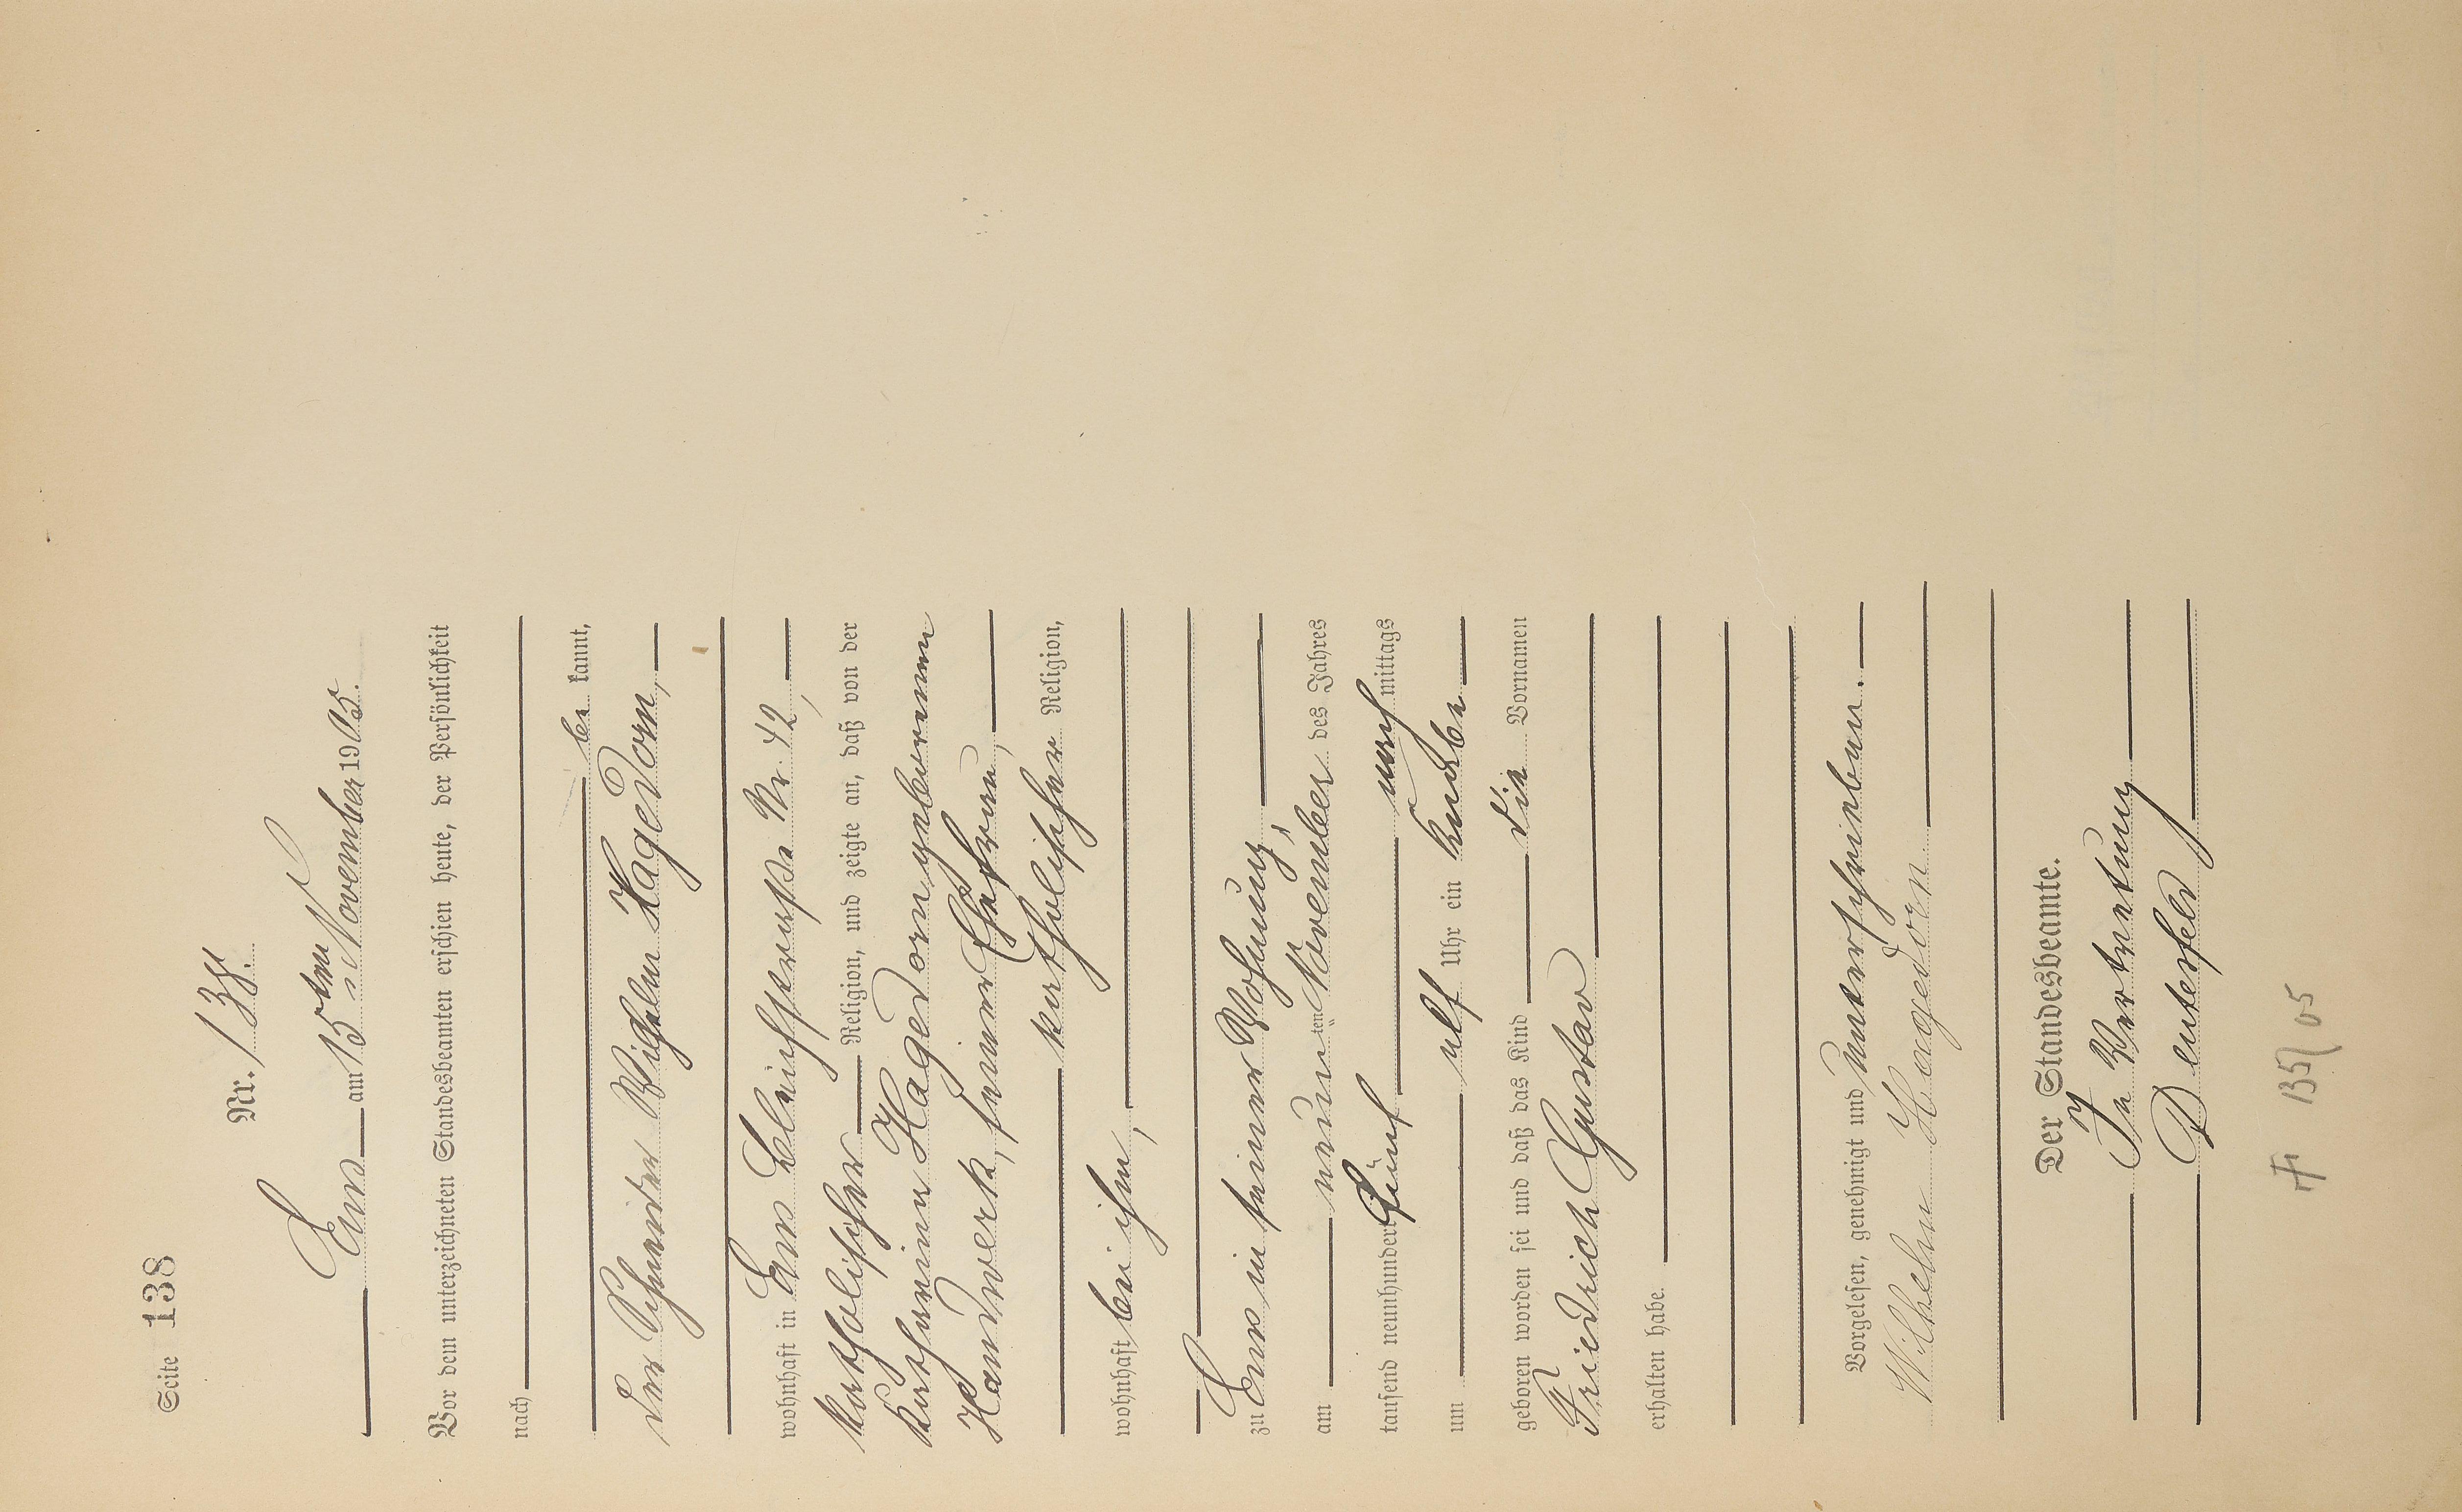 Seite 138
Nr. 138.
Ems am 15ten November 1905.
Vor dem unterzeichneten Standesbeamten erschien heute, der Persönlichkeit
nach
be kannt,
der Schneider Wilhelm Hagedorn,
wohnhaft in Ems Bleichstraße Nr. 42,
katholischer Religion, und zeigte an, daß von der
Katharina Hagedorn geborenen
Handwerk, seiner Ehefrau,
katholischer Religion,
wohnhaft bei ihm,
zu Ems in seiner Wohnung,
am neunten November des Jahres
tausend neunhundert fünf nach mittags
um elf Uhr ein Knabe
geboren worden sei und daß das Kind die Vornamen
Friedrich Gustav
erhalten habe.
Vorgelesen, genehmigt und unterschrieben.
Wilhelm Hagedorn
Der Standesbeamte.
In Vertretung
135/05